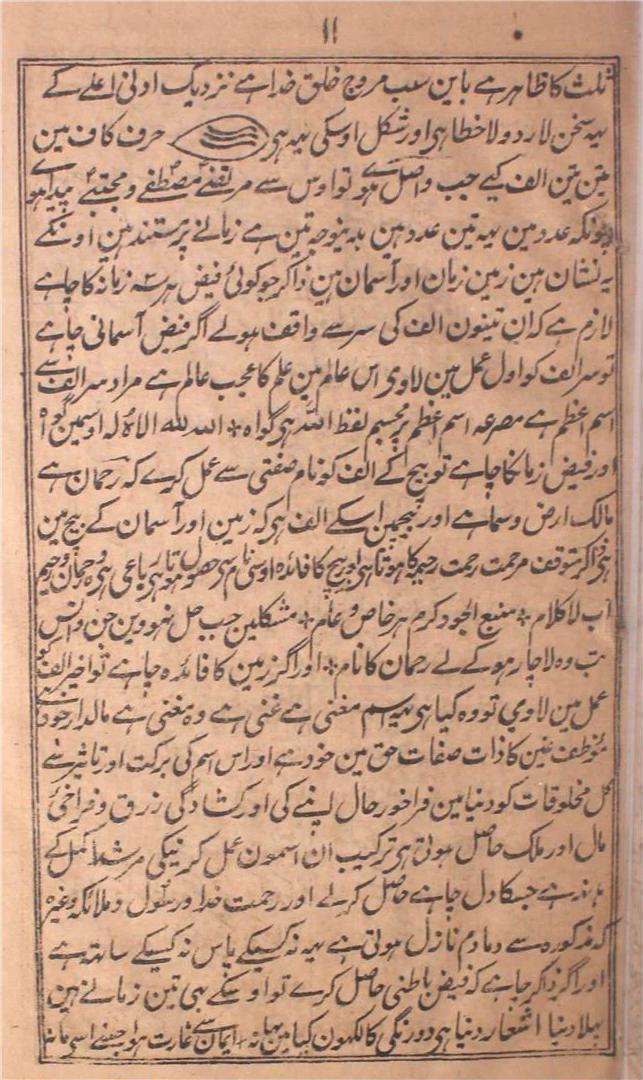 ۱۱
ثلث کا ظاہر ہے باین سبب مروج خلق خدا ہے نزدیک ادنی اعلے کے
یہہ سخن لا رد ولا خطا ہی اور شکل اوسکی یہہ ہی حرف کاف مین
تین تین الف کیے جب واصل ہو تو اوس سے مرتضے مصطفے و مجتبے پیدا ہوے
چونکہ عدد مین یہہ تین عدد ہین بدینوجہ تین ہے زمانے پر سند ہین اونکے
یہ نشان ہین زمین زمان اور آسمان ہین ذاکر جو کوئی فیض ہر سہ زمانہ کا چاہے
لازم ہے کہ ان تینون الف کی سر سے واقف ہولے اگر فیض آسمانی چاہے
تو سر الف کو اول عمل مین لاوی اس عالم مین علم کا عجب عالم ہے مراد سر الف سے
اسم اعظم ہے مصرعہ اسم اعظم پر مجسم لفظ اللہ ہی گواہ + اللہ للہ الا لہ اوسمین گواہ
اور فیض زمانکا چاہے تو بیچ کے الف کو نام صفتی سے عمل کرے کہ رحمان ہے
مالک ارض و سما ہے اور بیچمین اسکے الف ہی کہ زمین اور آسمان کے بیچ مین
ہی اگر متوقف مرحمت رحمت رحیم کا ہوتا ہی اور بیچ کا فائدہ اوسی نام سی حصول ہوتا ہی رباعی ہی وہ رحمان و رحیم
اب لا کلام + منبع الجود کرم ہر خاص و عام + مشکلین جب حل نہووین جن و انس
تب وہ لاچار ہو کے لے رحمان کا نام + اور اگر زمین کا فائدہ چاہے تو اخیر الف کو
عمل مین لاوی تو وہ کیا ہی یہہ اسم مغنی ہے غنی ہے وہ مغنی ہے مالدار خود
موظف غین کا ذات صفات حق مین خود ہے اور اس اسم کی برکت اور تاثیر سے
کل مخلوقات کو دنیا مین فراخور حال اپنے کی اور کشادگی رزق و فراخئ
مال اور ملک حاصل ہوتی ہی ترکیب ان اسمون عمل کرنیکی مرشد کمل کے
ہے جسکا دل چاہے حاصل کرلے اور رحمت خدا و رسول و ملائکہ وغیرہ
کہ مذکورہ سے دمادم نازل ہوتی ہے یہہ نہ کسیکے پاس نہ کسیکے ساتہہ ہے
اور اگر ذاکر چاہے کہ فیض باطنی حاصل کرے تو اوسکے بہی تین زمانے ہین
پہلا دنیا اشعار دنیا ہی دو رنگی کا لکہون کیا مین بہانہ + ایمان سے غارت ہوا جسنے اسے مانا